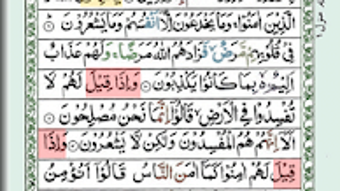 الَّذِيْنَ اٰمَنُوْا ۚ وَمَا يَخْدَعُوْنَ اِلَّاۤ اَنْفُسَهُمْ وَمَا يَشْعُرُوْنَ
فِىْ قُلُوْبِهِمْ مَّرَضٌ ۙ فَزَادَهُمُ اللّٰهُ مَرَضًا ۚ وَلَهُمْ عَذَابٌ
اَلِيْمٌۢ ۙ بِمَا كَانُوْا يَكْذِبُوْنَ وَاِذَا قِيْلَ لَهُمْ لَا
تُفْسِدُوْا فِى الْاَرْضِ ۙ قَالُوْۤا اِنَّمَا نَحْنُ مُصْلِحُوْنَ
اَلَاۤ اِنَّهُمْ هُمُ الْمُفْسِدُوْنَ وَلٰكِنْ لَّا يَشْعُرُوْنَ وَاِذَا
قِيْلَ لَهُمْ اٰمِنُوْا كَمَاۤ اٰمَنَ النَّاسُ قَالُوْۤا اَنُؤْمِنُ